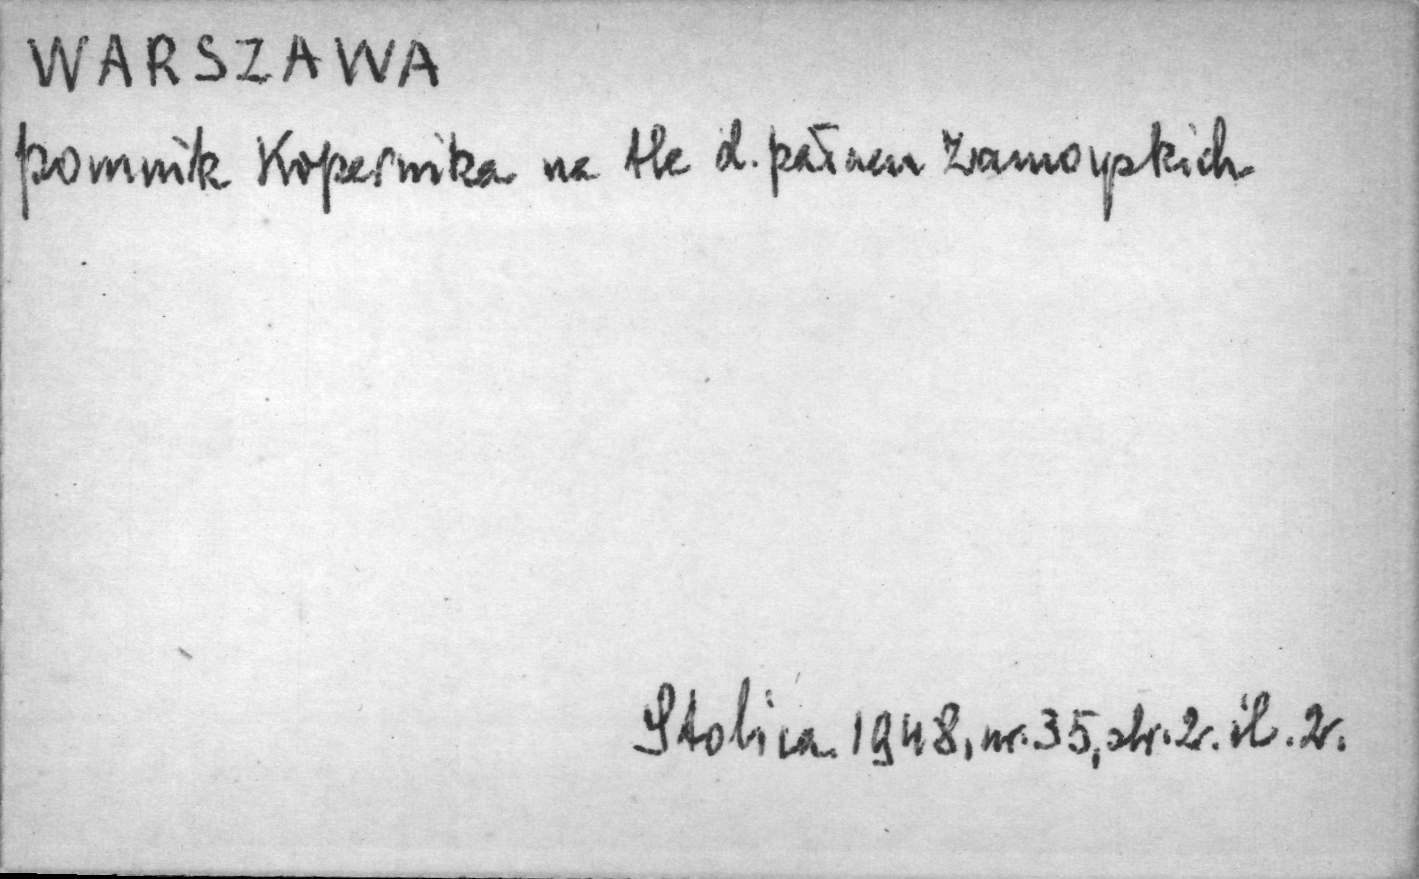 WARSZAWA
pomnik Kopernika na tle d. pałacu Zamoyskich
Stolica 1948, nr. 35, str. 2. il. 2.